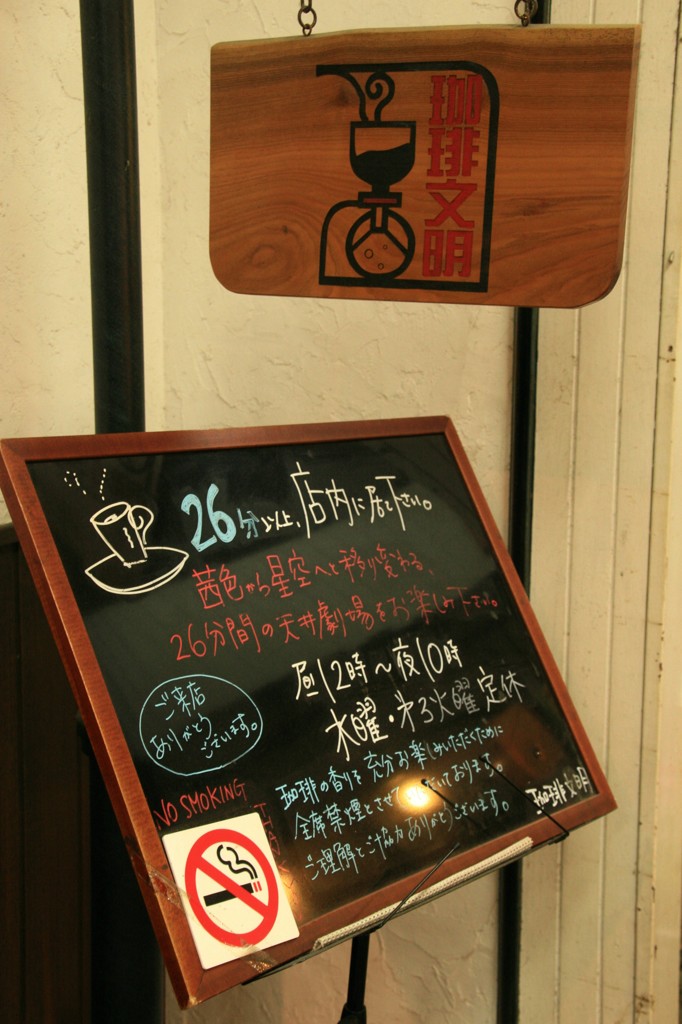 珈琲文明
26分以上、店内に居て下さい。
茜色から星空へと移り変わる、
26分間の天井劇場をお楽しみ下さい。
昼12時～夜10時
水曜・第3火曜定休
ご来店
ありがとう
ございます。
珈琲の香りを充分お楽しみいただくために
全席禁煙とさせて いております。
ご理解とご協力ありがとうございます。
珈琲文明
NO SMOKING